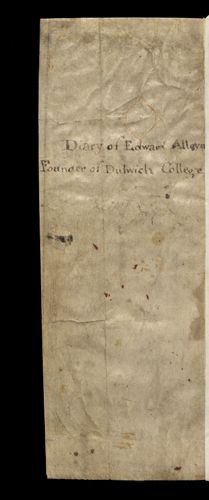 Diary of Edward Alleyn
Founder of Dulwich College